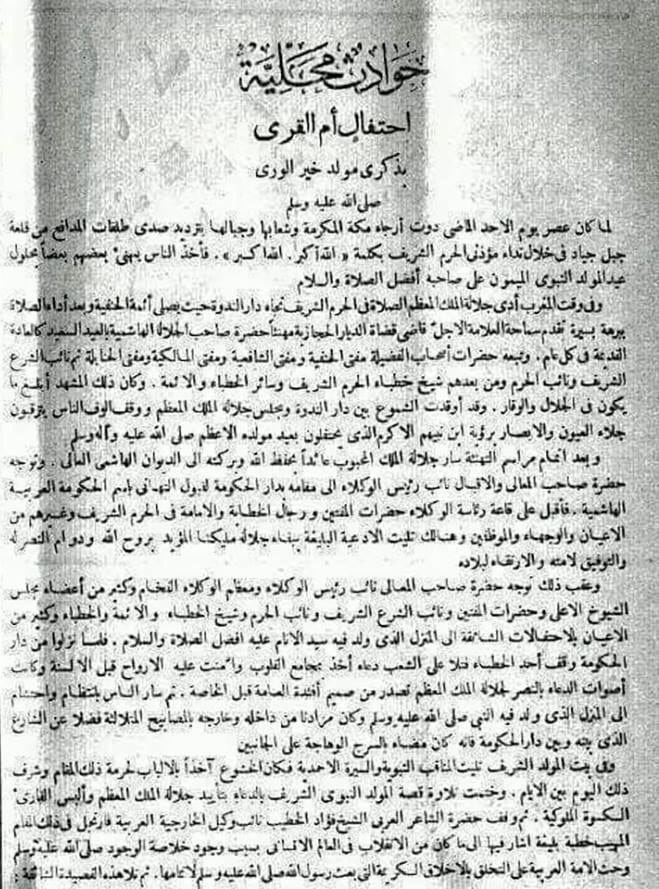 حوادث محلّيّة
احتفال أم القرى
بذكرى مولد خير الورى
صلى الله عليه وسلم
لما كان عصر يوم الاحد الماضى دوت أرجاء مكة المكرمة وشعابها وجبالها بترديد صدى طلقات المدافع من قلعة
جبل جياد فى خلال نداء مؤذنى الحرم الشريف بكلمة « الله أكبر . الله اكبر » . فأخذ الناس يهنئ بعضهم بعضا بحلول
عيد المولد النبوى الميمون على صاحبه أفضل الصلاة والسلام
وفى وقت المغرب أدى جلالة الملك المعظم الصلاة فى الحرم الشريف تجاه دار الندوة حيث يصلى أئمة الحنفية وبعد أداء الصلاة
ببرهة يسيرة تقدم سماحة العلامة الاجل قاضى قضاة الديار الحجازية مهنئا حضرة صاحب الجلالة الهاشمية بالعيد السعيد كالعادة
القديمة فى كل عام . وتبعه حضرات أصحاب الفضيلة مفتى الحنفية ومفتى الشافعية ومفتى المالكية ومفتى الحنابلة ثم نائب الشرع
الشريف ونائب الحرم ومن بعدهم شيخ خطباء الحرم الشريف وسائر الخطباء والائمة . وكان ذلك المشهد أبلغ ما
يكون فى الجلال والوقار . وقد أوقدت الشموع بين دار الندوة ومجلس جلالة الملك المعظم ووقف الوف الناس يترقبون
جلاء العيون والابصار برؤية ابن نبيهم الاكرم الذى يحتفلون بعيد مولده الاعظم صلى الله عليه وآله وسلم
وبعد اتمام مراسم التهنئة سار جلالة الملك المحبوب عائداً بحفظ الله وبركته الى الديوان الهاشمى العالى . وتوجه
حضرة صاحب المعالى والاقبال نائب رئيس الوكلاء الى مقامه بدار الحكومة لقبول التهانى باسم الحكومة العربية
الهاشمية . فأقبل على قاعة رئاسة الوكلاء حضرات المفتين ورجال الخطابة والامامة فى الحرم الشريف وغيرهم من
الاعيان والوجهاء والموظفين وهنالك تليت الادعية البليغة ببقاء جلالة مليكنا المؤيد بروح الله ودوام النصر له
والتوفيق لامته والارتقاء لبلاده
وعقب ذلك توجه حضرة صاحب المعالى نائب رئيس الوكلاء ومعظم الوكلاء الفخام وكثير من أعضاء مجلس
الشيوخ الاعلى وحضرات المفتين ونائب الشرع الشريف ونائب الحرم وشيخ الخطباء والائمة والخطباء وكثير من
الاعيان بالاحتفالات الشائقة الى المنزل الذى ولد فيه سيد الانام عليه افضل الصلاة والسلام . فلما نزلوا من دار
الحكومة وقف أحد الخطباء فتلا على الشعب دعاء أخذ بمجامع القلوب وأمنت عليه الارواح قبل الالسنة وكانت
أصوات الدعاء بالنصر لجلالة الملك المعظم تصدر من صميم أفئدة العامة قبل الخاصة . ثم سار الناس بانتظام واحتشام
الى المنزل الذى ولد فيه النبى صلى الله عليه وسلم وكان مزدانا من داخله وخارجه بالمصابيح المتلألئة فضلا عن الشارع
الذى بينه وبين دار الحكومة فانه كان مضاء بالسرج الوهاجة على الجانبين
وفى بيت المولد الشريف تليت المناقب النبوية والسيرة الاحمدية فكان الخشوع آخذاً بالالباب لحرمة ذلك المقام وشرف
ذلك اليوم بين الايام . وختمت تلاوة قصة المولد النبوى الشريف بالدعاء بتأييد جلالة الملك المعظم وألبس القارئ
الكسوة الملوكية . ثم وقف حضرة الشاعر العربى الشيخ فؤاد الخطيب نائب وكيل الخارجية العربية فارتجل فى ذلك المقام
المهيب خطبة بليغة اشار فيها الى ما كان من الانقلاب فى العالم الانسانى بسبب وجود خلاصة الوجود صلى الله عليه وسلم
وحث الامة العربية على التخلق بالاخلاق الكريمة التى بعث رسول الله صلى الله عليه وسلم لاتمامها . ثم تلا هذه القصيدة الشائقة :